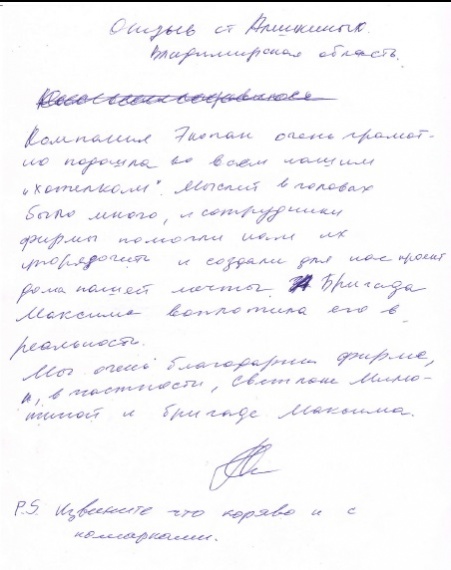 Отзыв от Алишкиных.
Владимирская область.
Компания Экопан очень грамот-
но подошла ко всем нашим
"хотелкам". Мыслей в головах
было много, и сотрудники
фирмы помогли нам их
упорядочить и создали для нас проект
дома нашей мечты. Бригада
Максима воплотила его в
реальность.
Мы очень благодарны фирме,
и, в частности, Светлане
и бригаде Максима.
P.S. Извините что коряво и с
помарками.